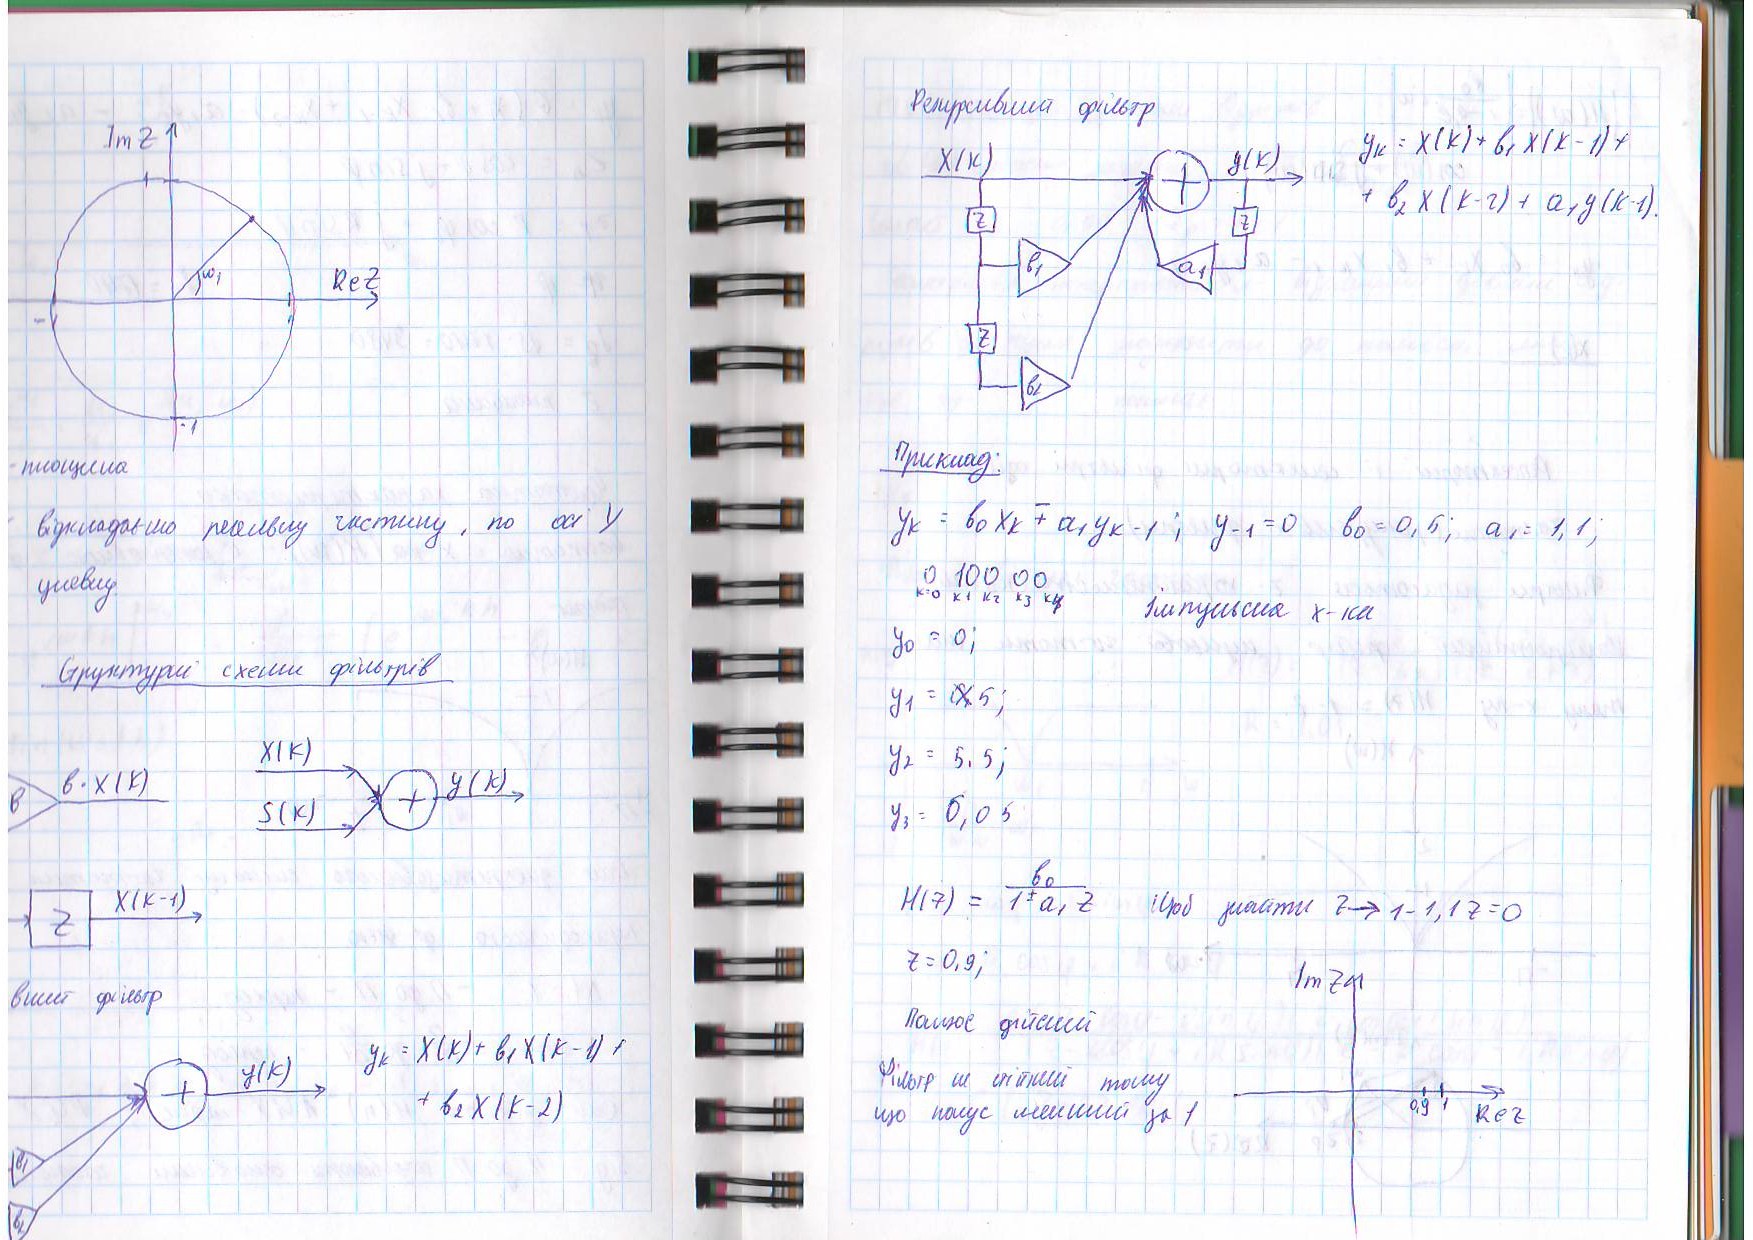 Im Z
1
ω1
Re Z
-
1
-1
- площина
відкладаємо реальну частину, по осі У
уявну
Структурні схеми фільтрів
в
в·X(K)
X(K)
S(K)
+
y(K)
Z
X(K-1)
вний фільтр
+
y(K)
в1
в2
yк = X(K) + в1 X(K-1) +
+ в2 X(K-2)
Рекурсивний фільтр
X(K)
+
y(K)
Z
Z
в1
а1
Z
в2
yк = X(K) + в1 X(K-1) +
+ в2 X(K-2) + a1 y(K-1).
Приклад:
yк = в0 xк ∓ a1 yк-1; y-1 = 0 в0 = 0,5; a1 = 1,1;
0 100 00
к=0 к1 к2 к3 к4
Імпульсна х-ка
y0 = 0;
y1 = 5;
y2 = 5.5;
y3 = 6,05
H(Z) = в0 / 1 ∓ a1 Z Щоб знайти Z → 1-1,1 Z = 0
Z = 0,9;
Полюс дійсний
Фільтр не стійкий тому
що полюс менший за 1
Im Z
0,9
1
Re Z